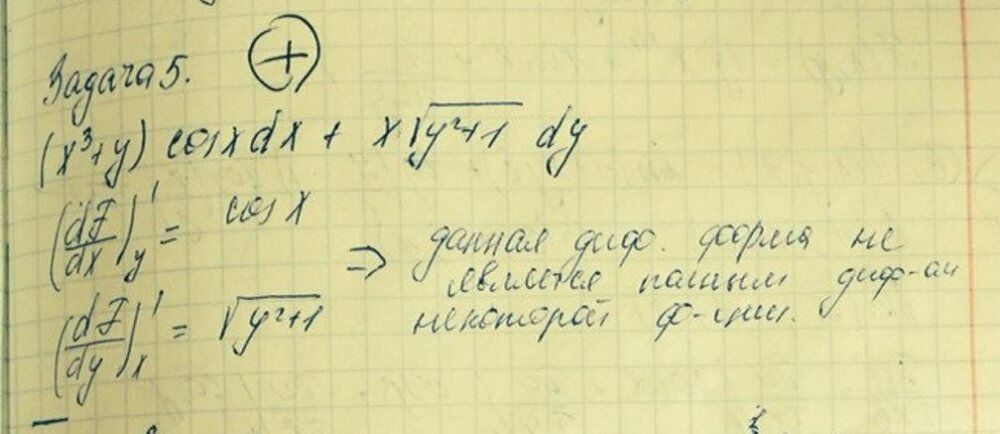 Задача 5. +
(x³+y) cosx dx + x√(y²+1) dy
(dF/dx)'y = cos x
⇒ данная диф. форма не
является полным диф-ом
(dF/dy)'x = √(y²+1)
некоторой ф-ции.